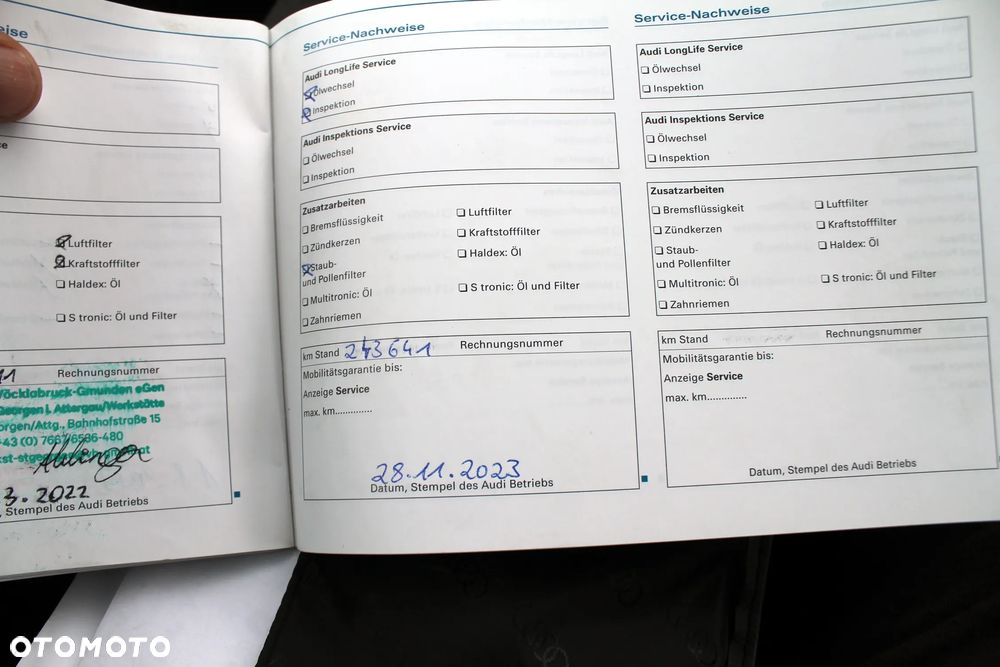 eise
ce
Luftfilter
Kraftstofffilter
Haldex: Öl
S tronic: Öl und Filter
Rechnungsnummer
Vöcklabruck-Gmunden eGen
Georgen i. Attergau/Werkstätte
orgen/Attg., Bahnhofstraße 15
3.2022
, Stempel des Audi Betriebs
Service-Nachweise
Audi LongLife Service
Ölwechsel
Inspektion
Audi Inspektions Service
Ölwechsel
Inspektion
Zusatzarbeiten
Bremsflüssigkeit
Zündkerzen
Staub-
und Pollenfilter
Multitronic: Öl
Zahnriemen
Luftfilter
Kraftstofffilter
Haldex: Öl
S tronic: Öl und Filter
km Stand 243641 Rechnungsnummer
Mobilitätsgarantie bis:
Anzeige Service
max. km..............
28.11.2023
Datum, Stempel des Audi Betriebs
Service-Nachweise
Audi LongLife Service
Ölwechsel
Inspektion
Audi Inspektions Service
Ölwechsel
Inspektion
Zusatzarbeiten
Bremsflüssigkeit
Zündkerzen
Staub-
und Pollenfilter
Multitronic: Öl
Zahnriemen
Luftfilter
Kraftstofffilter
Haldex: Öl
S tronic: Öl und Filter
km Stand Rechnungsnummer
Mobilitätsgarantie bis:
Anzeige Service
max. km..............
Datum, Stempel des Audi Betriebs
OTOMOTO